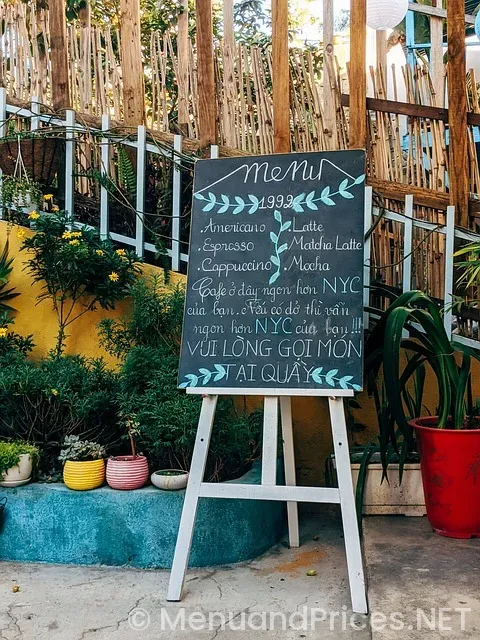 menu
1992
.Americano .Latte
.Espresso .Matcha Latte
.Cappuccino .Mocha
Cafe ở đây ngon hơn NYC
của bạn. Nếu có dở thì vẫn
ngon hơn NYC của bạn !!!
VUI LÒNG GỌI MÓN
TẠI QUẦY
© MenuandPrices.NET